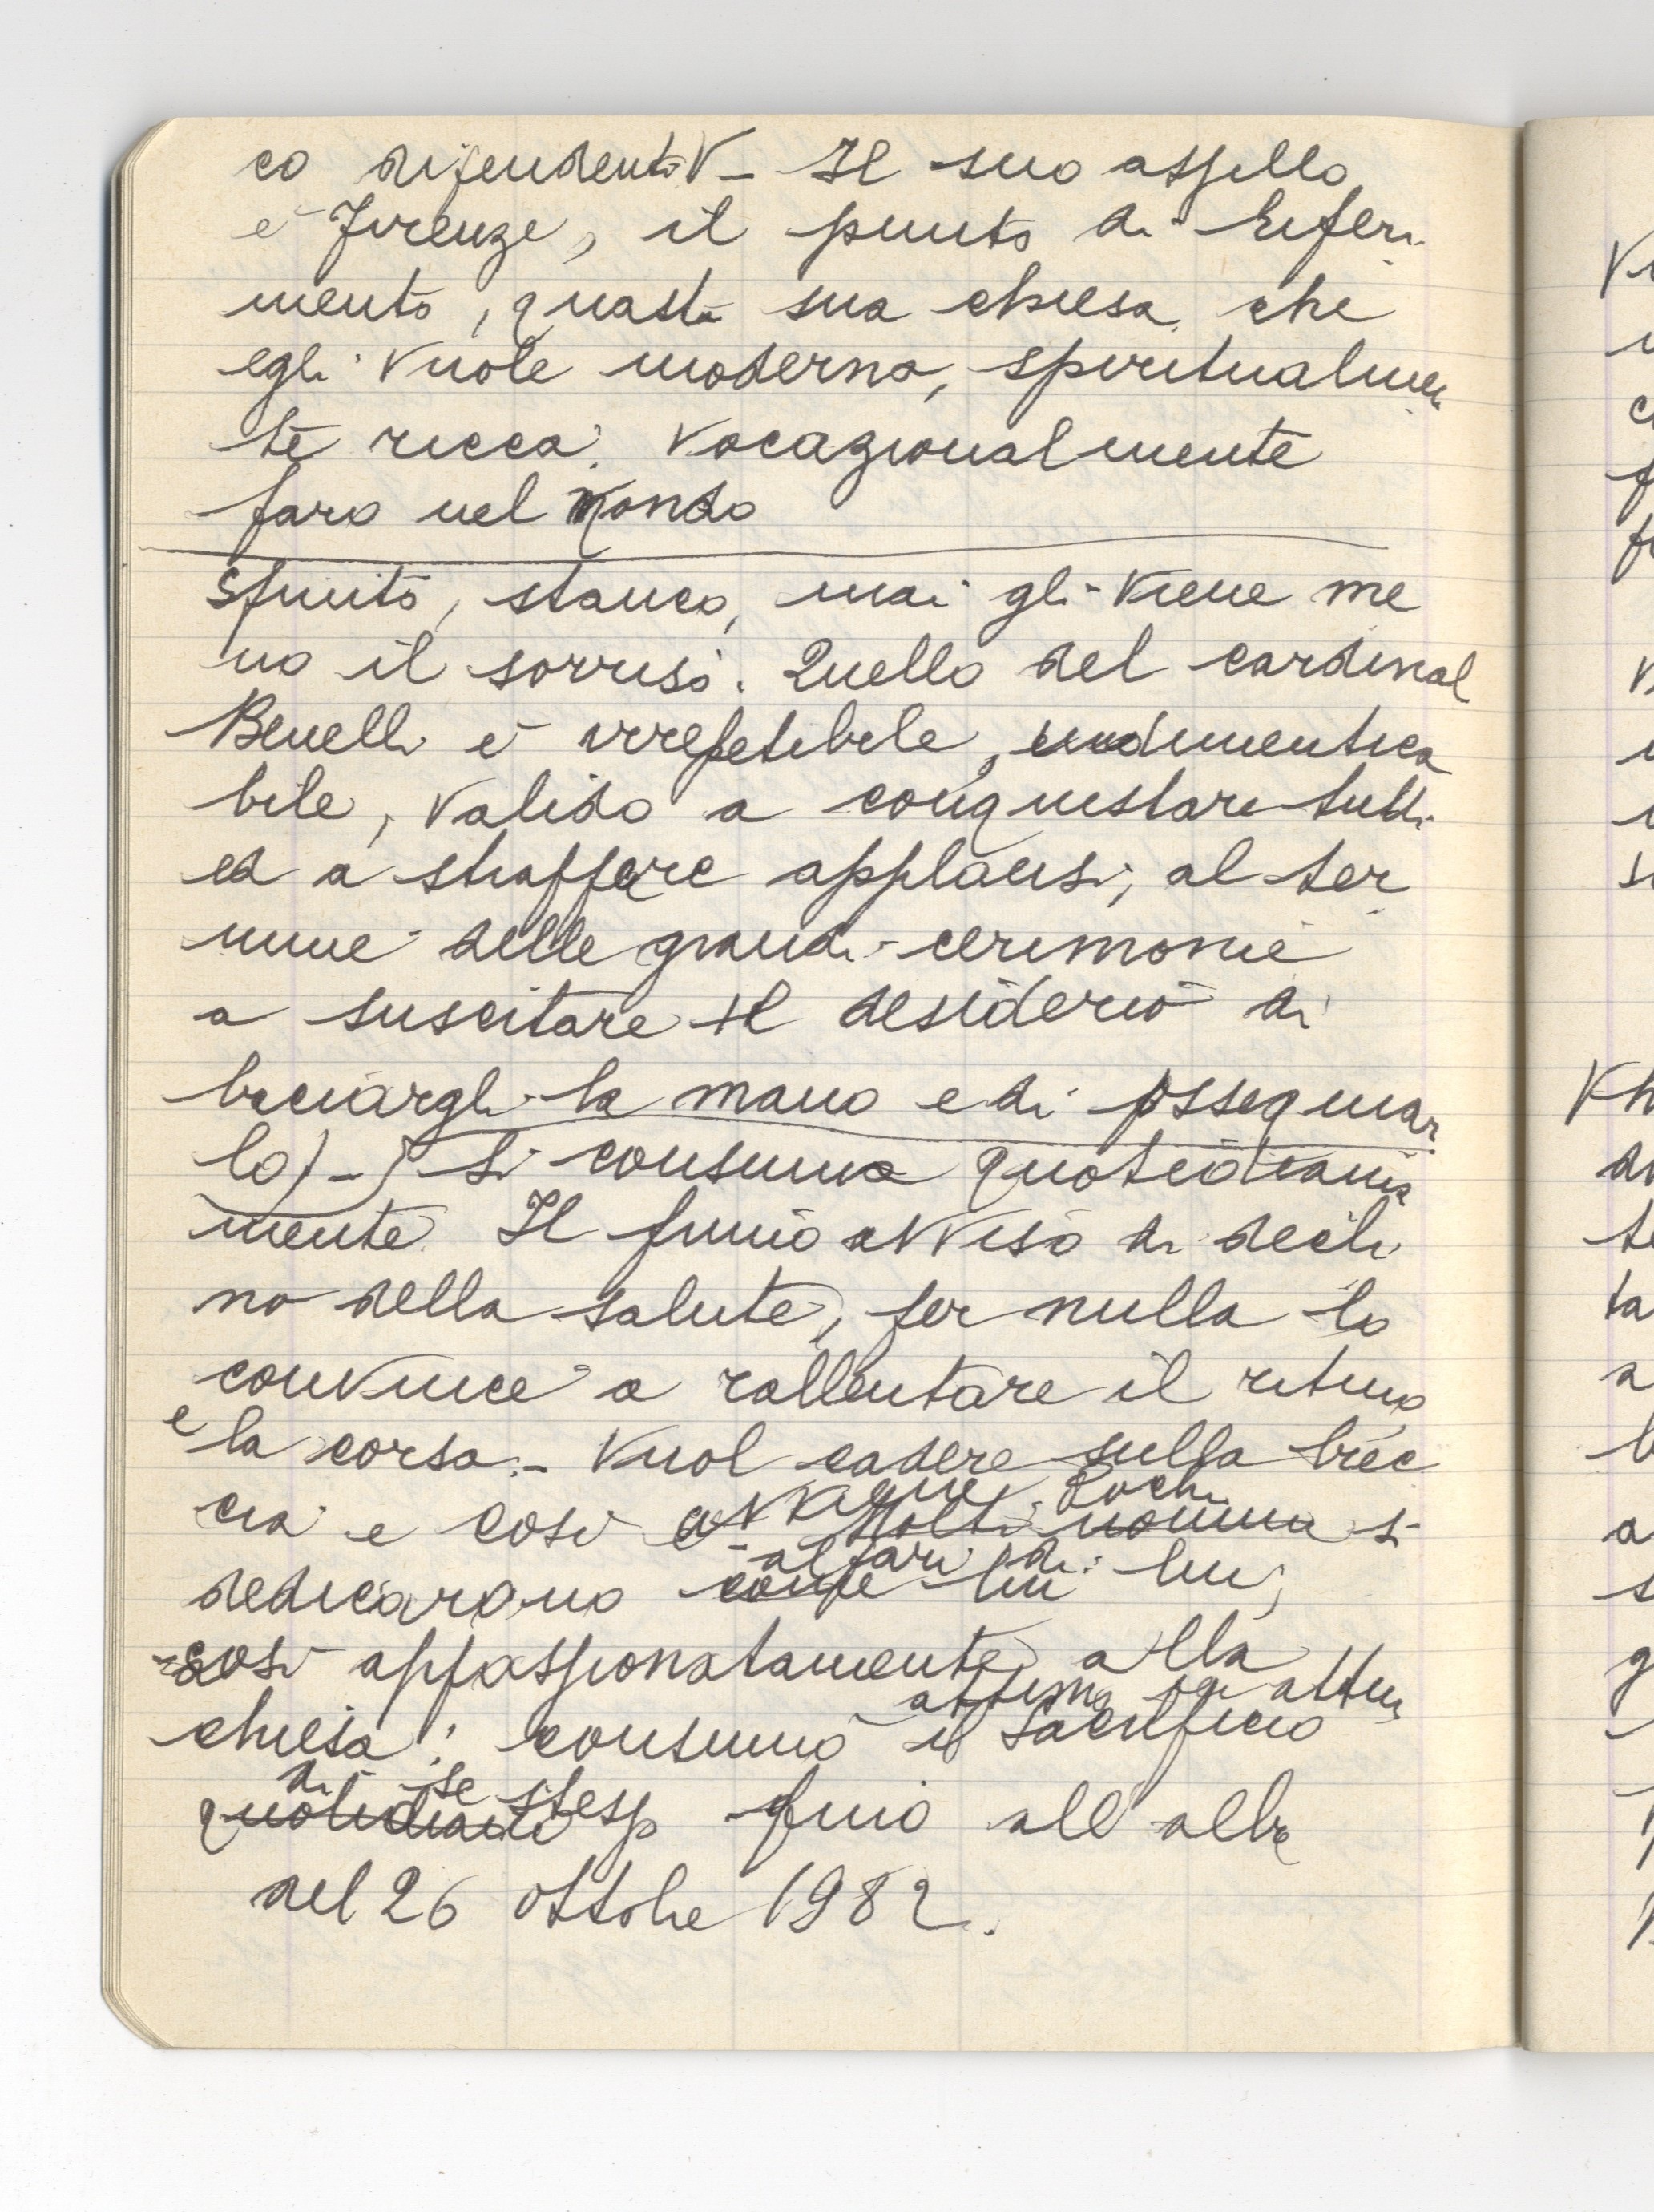 co dipendenti V - Il suo assillo
è Firenze, il punto di riferi
mento, questa sua chiesa che
egli vuole moderna, spiritualmen
te ricca, vocazionalmente
faro nel mondo
Sfinito, stanco, mai gli viene me
no il sorriso. Quello del cardinal
Benelli è irrepetibile, indimentica
bile, valido a conquistare tutti
ed a strappare applausi, al ter
mine delle grandi cerimonie
a suscitare il desiderio di
baciargli la mano e di ossequiar
lo) - Si consuma quotidiana
mente. Il primo avviso di decli
no della salute, per nulla lo
convince a rallentare il ritmo
e la corsa. - Vuol cadere sulla brec
cia e così avvenne. Pochi
Molti si
dedicarono come lui al pari di lui,
così appassionatamente alla
chiesa: consumò attimo per attimo
il sacrificio
di se stesso
quotidiano fino all'alba
del 26 ottobre 1982.